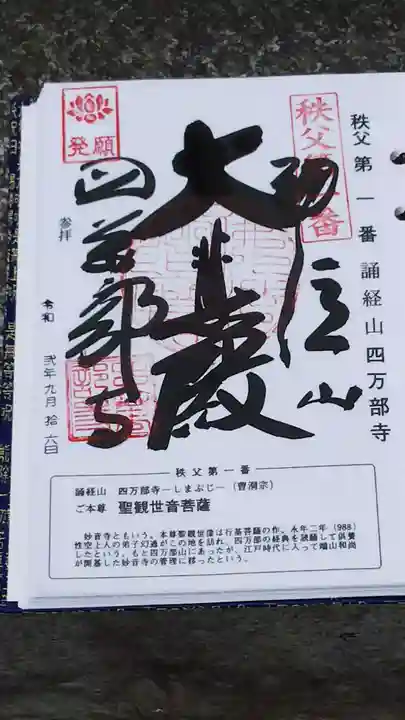 秩父第一番 誦経山四万部寺
秩父第一番
大悲殿
四萬部寺
発願
参拝
令和 弐年九月拾六日
秩父第一番
誦経山 四万部寺―しまぶじ―(曹洞宗)
ご本尊 聖観世音菩薩
妙音寺ともいう。本尊聖観世音は行基菩薩の作。永年二年(988)
性空上人の弟子幻通がこの地を訪れ、四万部の経典を読誦して供養
したという。もと四万部山にあったが、江戸時代に入って端山和尚
が開基した妙音寺の管理に移ったという。